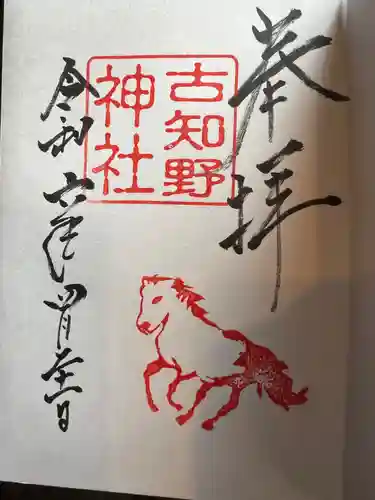 奉拝
古知野
神社
令和六年四月
日